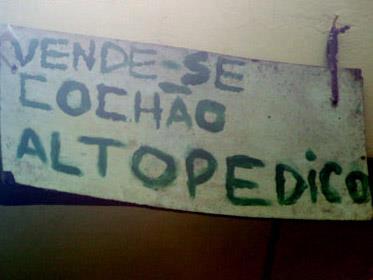 VENDE-SE
COCHÃO
ALTOPEDiCO